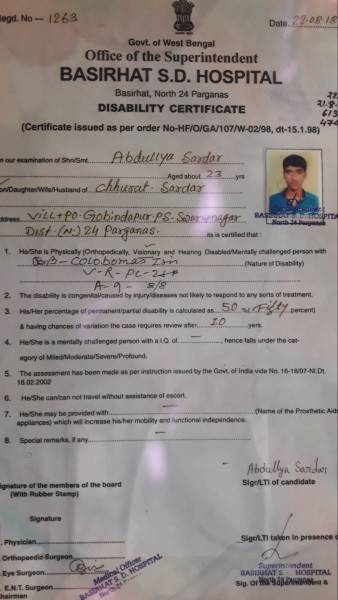 Regd. No — 1263 Date 22-08-18
Govt. of West Bengal
Office of the Superintendent
BASIRHAT S.D. HOSPITAL
Basirhat, North 24 Parganas
DISABILITY CERTIFICATE
(Certificate issued as per order No-HF/O/GA/107/W-02/98, dt-15.1.98)
on our examination of Shri/Smt. Abdullya Sardar
Aged about 23 yrs
Son/Daughter/Wife/Husband of Chhurat Sardar
BASIRHAT S.D. HOSPITAL
Address Vill+PO-Gobindapur P.S-
Dist-(N) 24 Parganas. its is certified that :
1. He/She is Physically (Orthopedically, Visionary and Hearing Disabled/Mentally challenged person with
B/3 - Colobomas (Nature of Disability)
2. The disability is congenital/caused by injury/diseases not likely to respond to any sorts of treatment.
3. His/Her percentage of permanent/partial disability is calculated as 50 % (Fifty percent)
& having chances of variation the case requires review after 10 yers.
4. He/She is a mentally challenged person with a I.Q. of —, hence falls under the cat-
egory of Miled/Moderate/Severe/Profound.
5. The assessment has been made as per instruction issued by the Govt. of India vide No. 16-18/97-NI.Dt.
18.02.2002
6. He/She can/can not travel without assistance of escort.
7. He/She may be provided with — (Name of the Prosthetic Aids
appliances) which will increase his/her mobility and functional independence.
8. Special remarks, if any —
Abdullya Sardar
Signature of the members of the board Sigr/LTI of candidate
(With Rubber Stamp)
Signature
Physician Sigr/LTI taken in presence o
Orthopaedic Surgeon
Eye Surgeon
Medical Officer
BASIRHAT S. D. HOSPITAL
North 24-
Superintendent
BASIRHAT S. HOSPITAL
North 24 Parganas
E.N.T. Surgeon Sig. Of the Superintendent &
Chairman